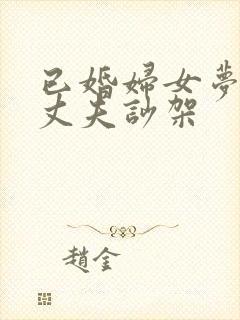 已婚婦女夢
丈夫訬架
趙金